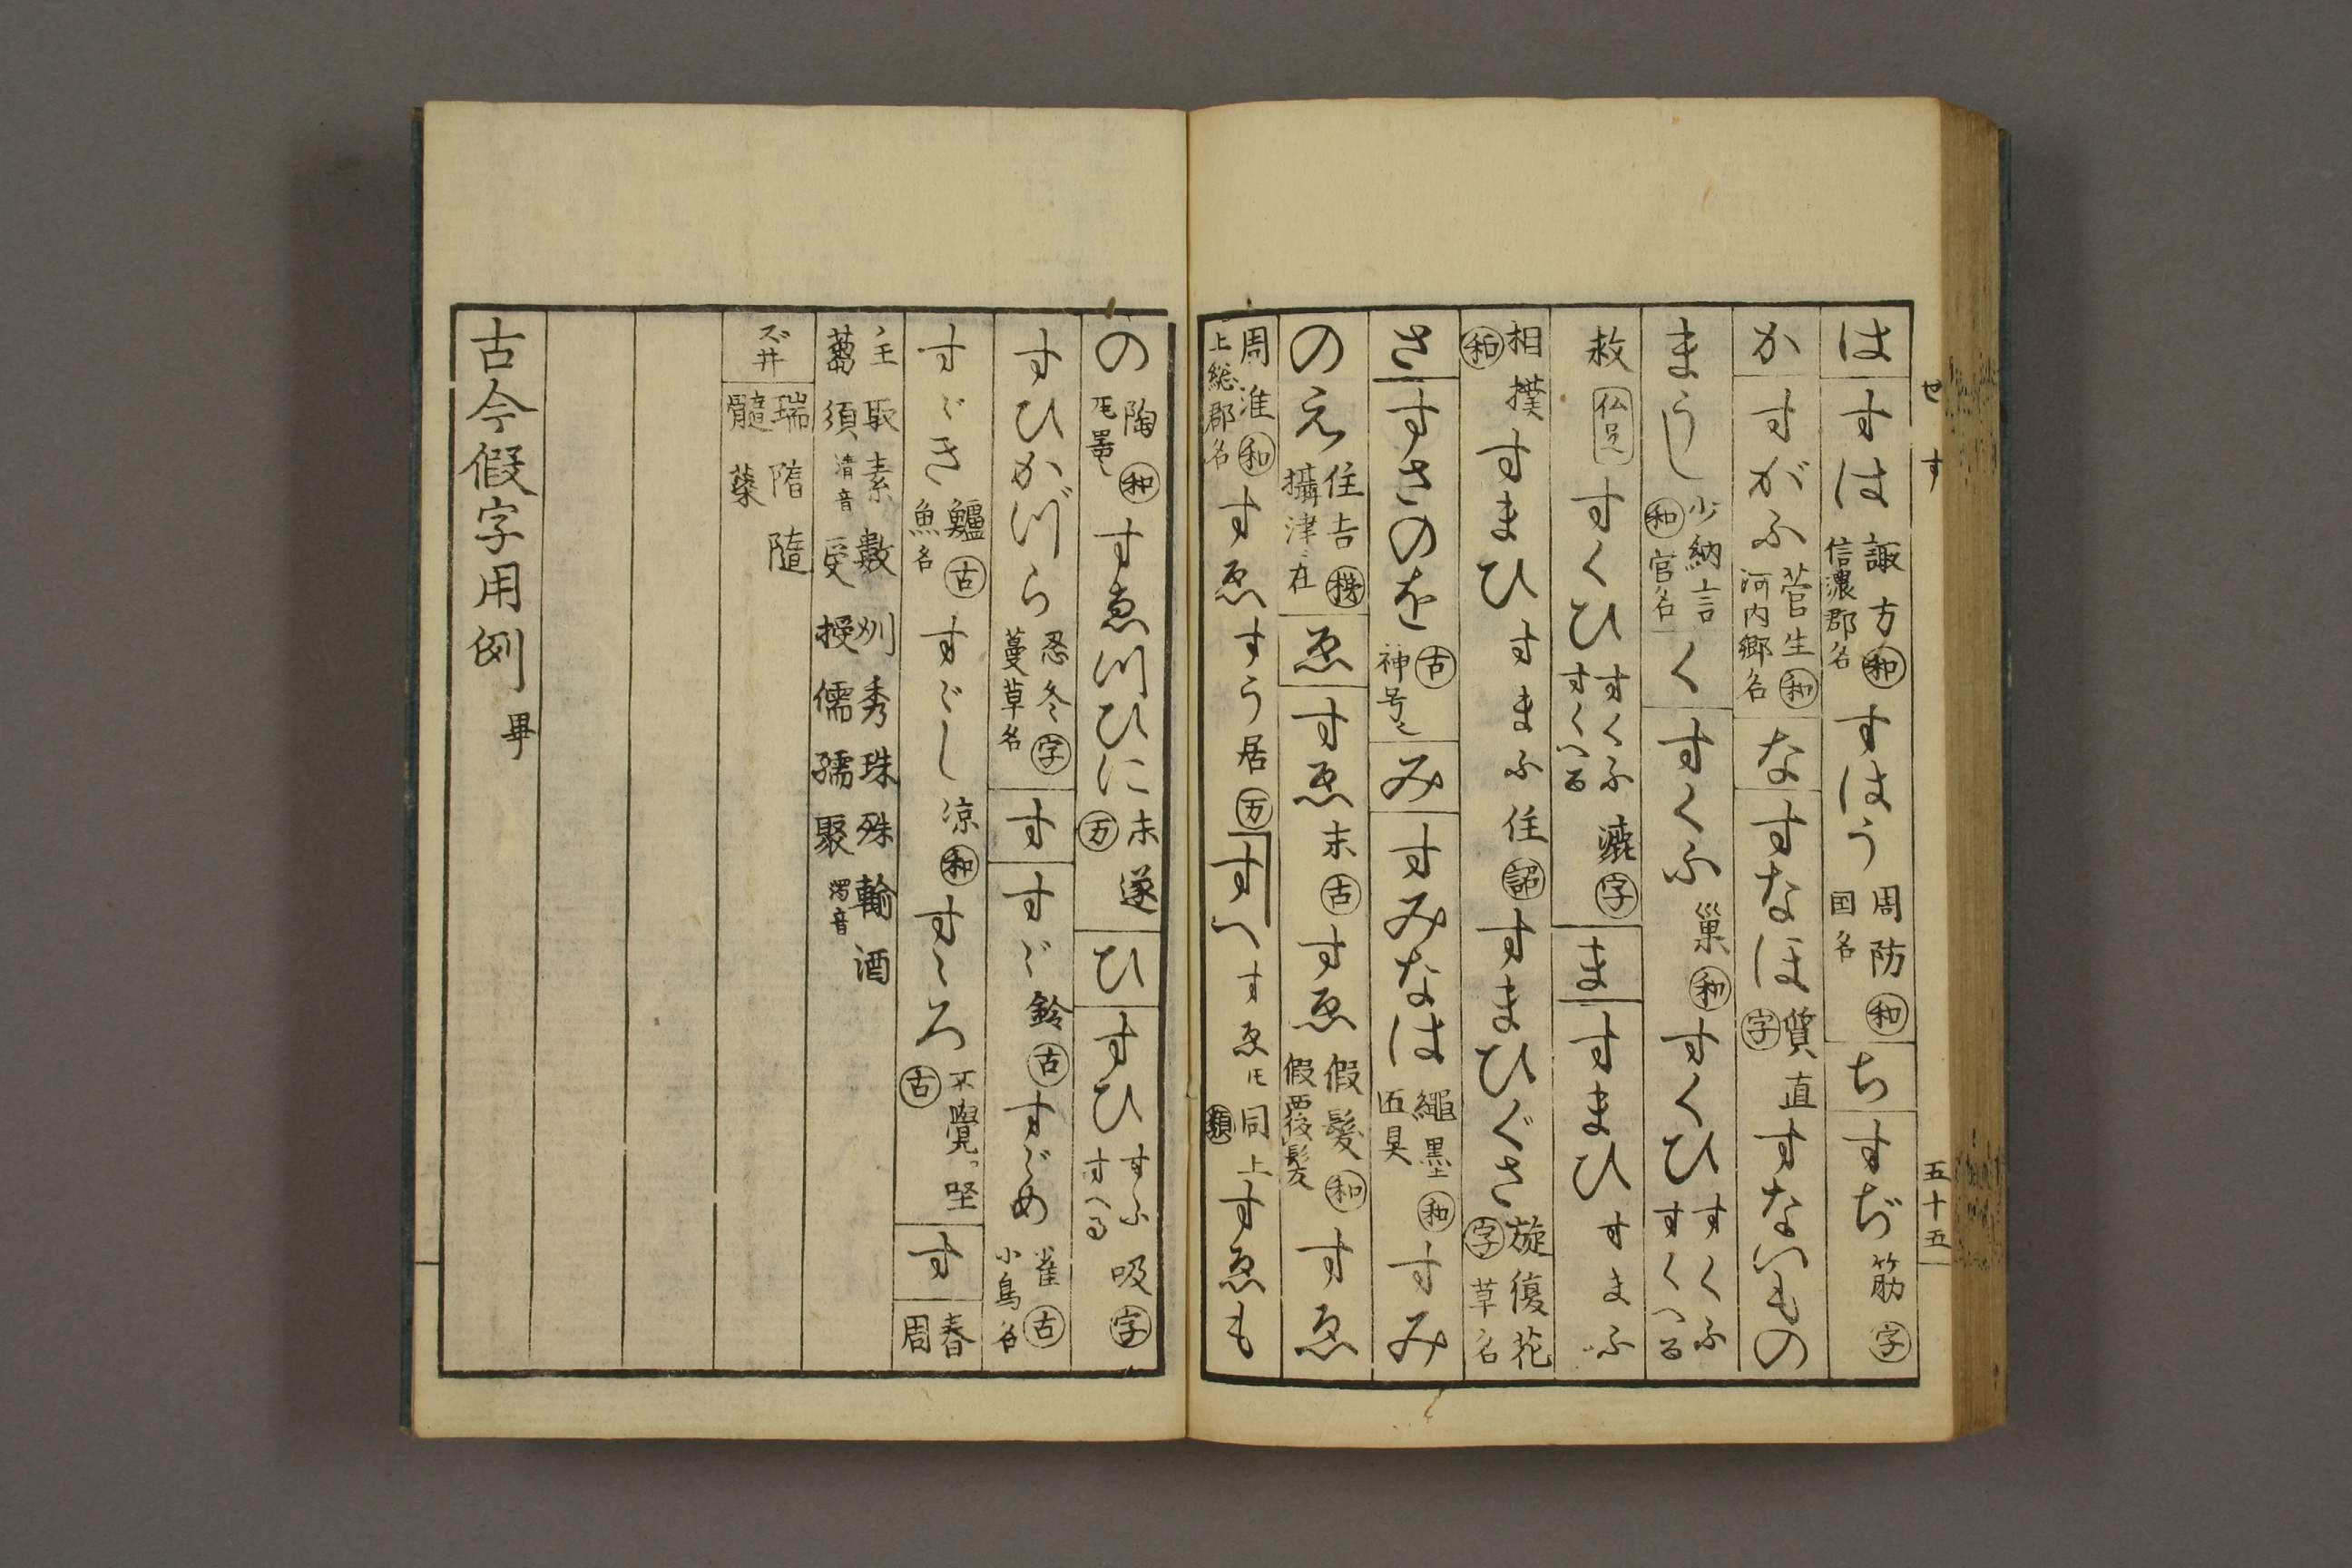 せ す 五十五
は すは 諏方 和 信濃郡名 すはう 周防 和 国名 ち すぢ 筋 字
か すがふ 菅生 和 河内郷名 な すなほ 質直 字 すないもの
まうし 少納言 和 官名 く すくふ 巣 和 すくひ すくふ すくへる
救 すくひ すくふ すくへる 漉 字 ま すまひ すまふ
相撲 和 すまひ すまふ 住 詔 すまひぐさ 旋復花 字 草名
さ すさのを 古 神号也 み すみなは 繩墨 和 匠具 すみ
のえ 住吉 摂津ニ在 ゑ すゑ 末 古 すゑ 假髪 和 假覆髪 すゑ
周淮 和 上総郡名 すゑ すう 居 万 すへ すゑ 同上 類 すゑも
の 陶 和 瓦器也 すゑつひに 未遂 万 ひ すひ すふ すへる 吸 字
すひかづら 忍冬 字 蔓草名 す すゞ 鈴 古 すゞめ 雀 古 小鳥名
すゞき 鱸 古 魚名 すゞし 凉 和 すゝろ 不覺 古 す 春 周
主 取 素 數 刈 秀 珠 殊 輸 酒 蒭 須 清音 受 授 儒 孺 聚 濁音
ズ井 瑞 隋 隨 髓 蘂
古今假字用例 畢